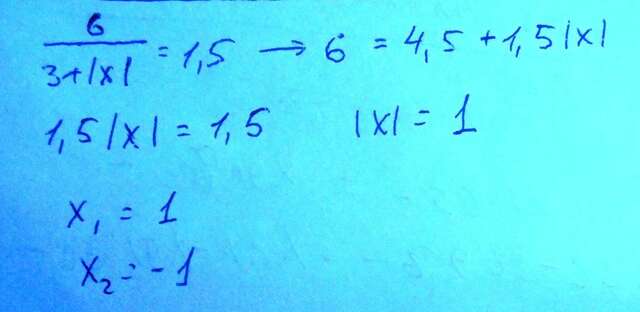 6/(3+|x|) = 1,5 → 6 = 4,5 + 1,5|x|
1,5|x| = 1,5 |x| = 1
x₁ = 1
x₂ = -1